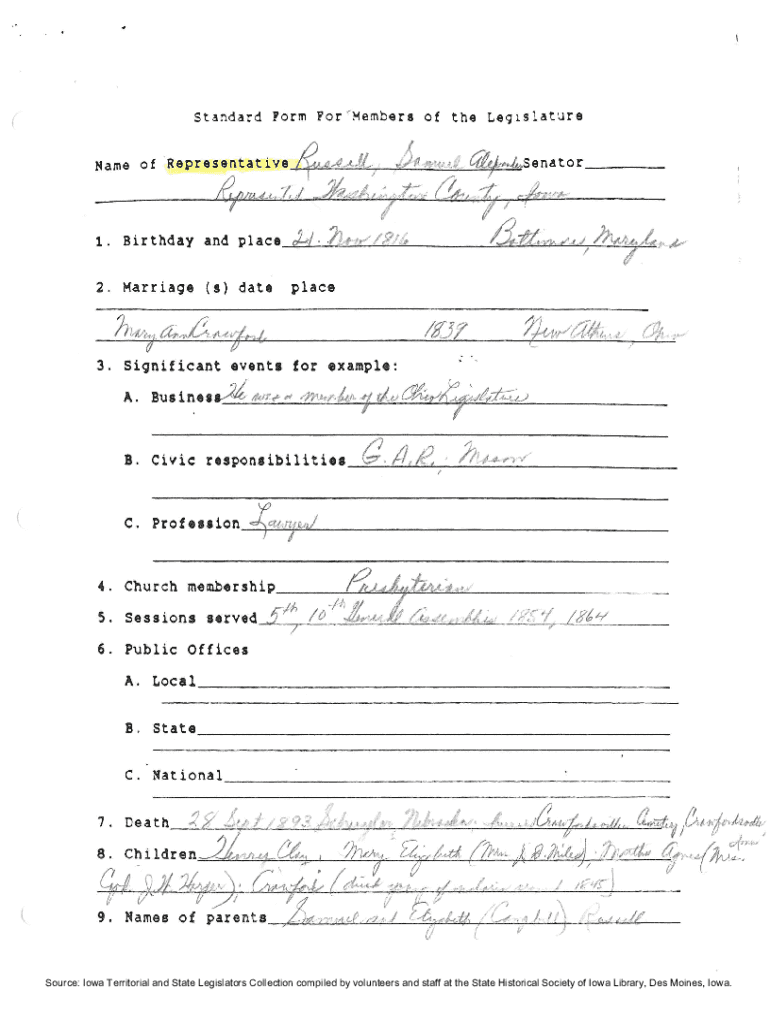 Standard Form For Members of the Legislature
Name of Representative Russell, Samuel Alexander Senator
Represented Washington County, Iowa
1. Birthday and place 21 Nov 1816 Baltimore, Maryland
2. Marriage (s) date place
Mary Ann Crawford 1839 New Athens, Ohio
3. Significant events for example:
A. Business He was a member of the Ohio Legislature
B. Civic responsibilities G.A.R., Mason
C. Profession Lawyer
4. Church membership Presbyterian
5. Sessions served 5th, 10th General Assemblies 1854, 1864
6. Public Offices
A. Local
B. State
C. National
7. Death 28 Sept 1893 Schuyler, Nebraska Crawfordsville Cemetery, Crawfordsville
Iowa
8. Children Henry Clay, Mary Elizabeth (Mrs. J. D. Miles); Martha Agnes (Mrs.
Capt. J. W. Harper); Crawford (died young of 1845)
9. Names of parents Samuel and Elizabeth (Campbell) Russell
Source: Iowa Territorial and State Legislators Collection compiled by volunteers and staff at the State Historical Society of Iowa Library, Des Moines, Iowa.